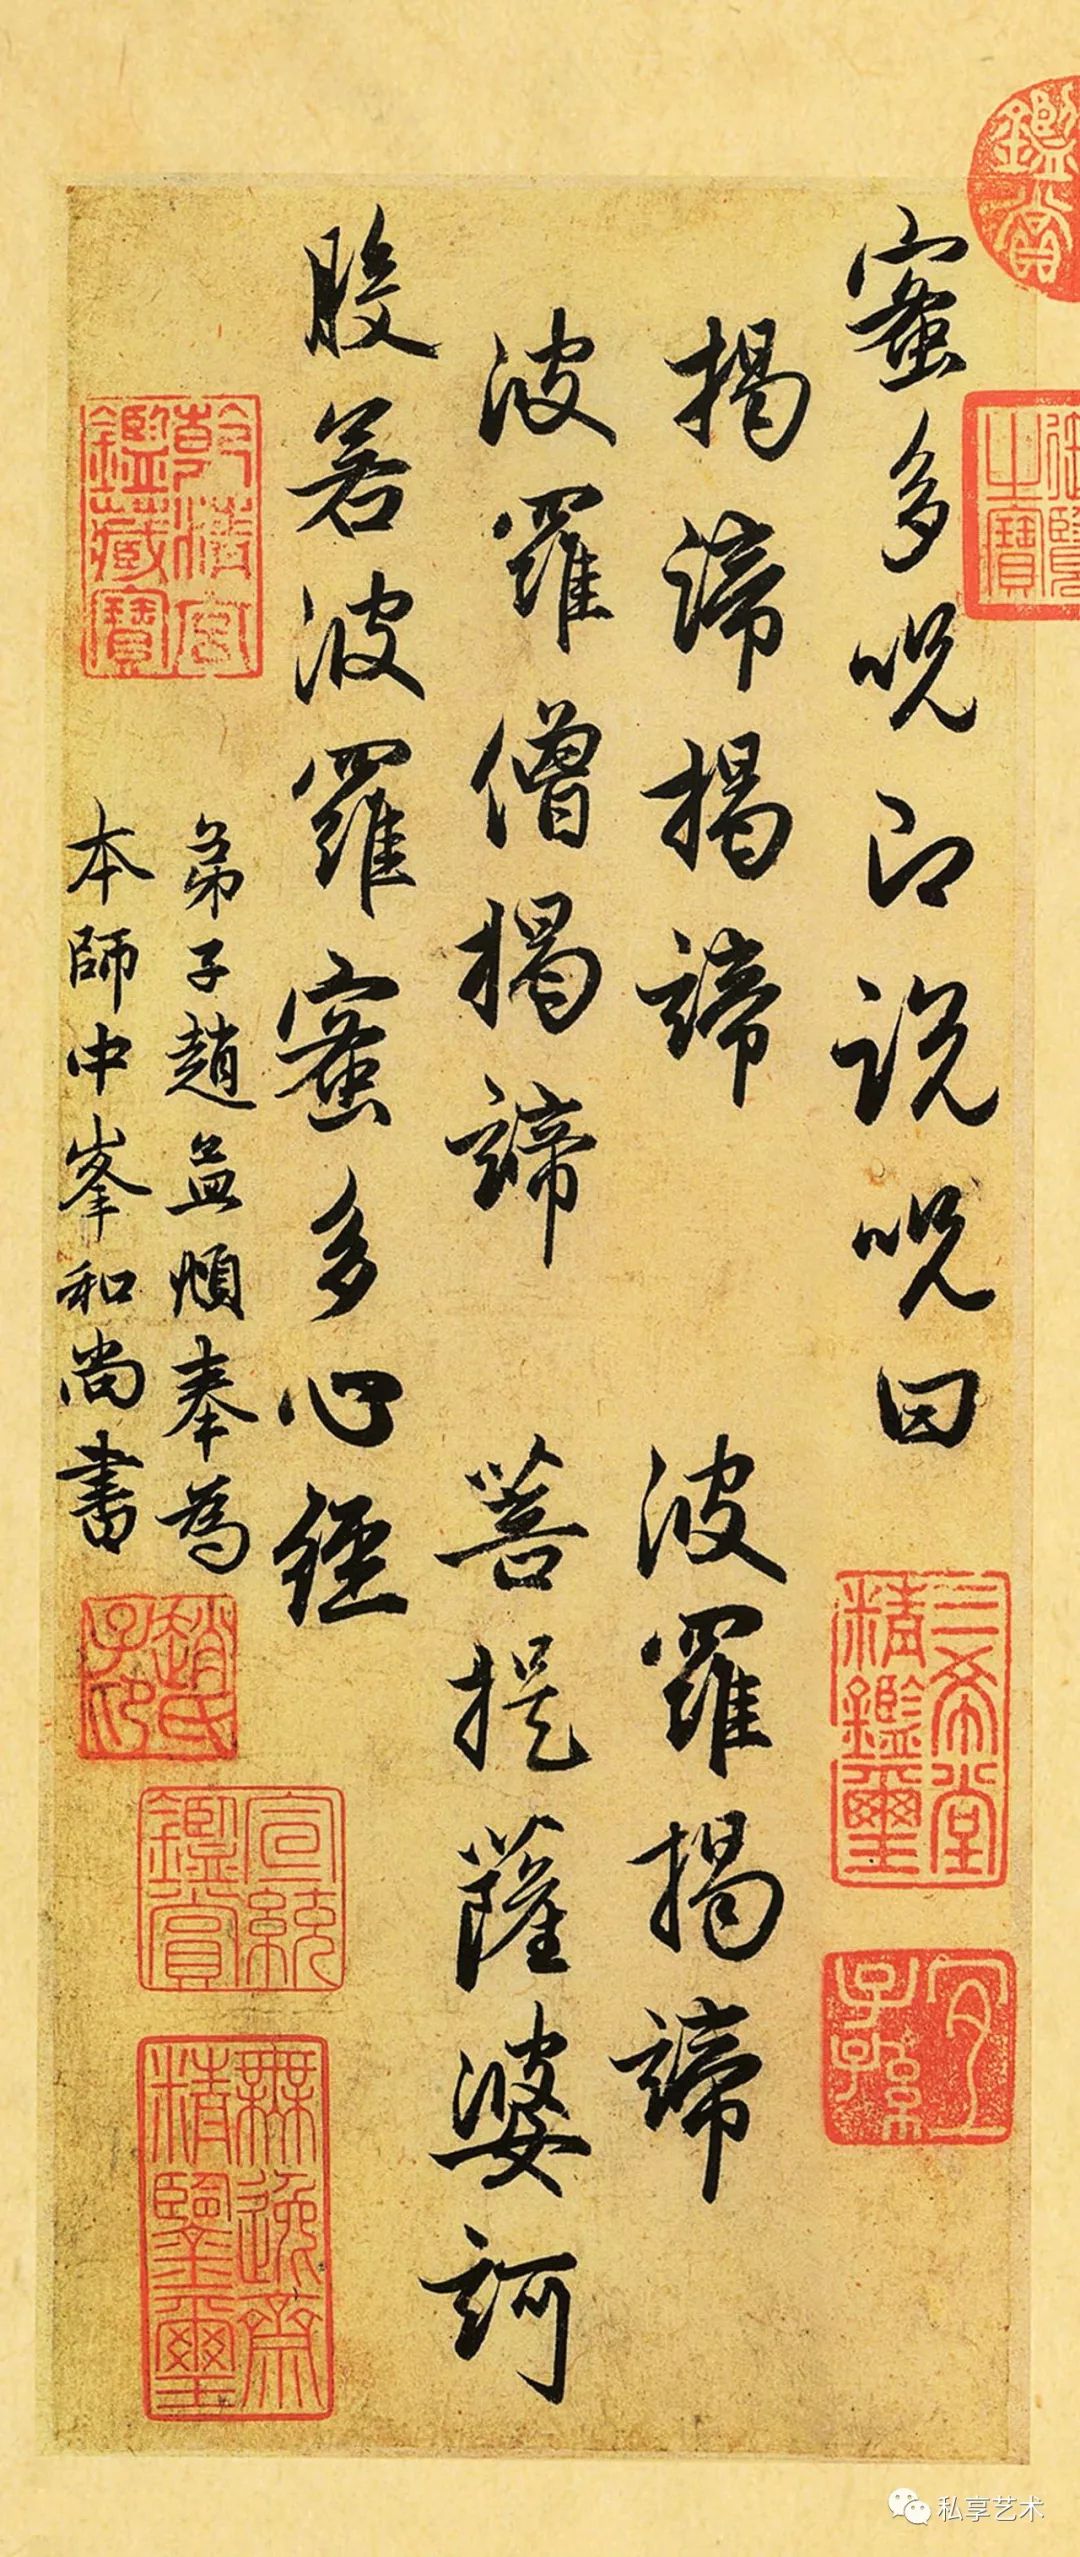 鑑賞
御覽之寶
蜜多呪即說呪曰
三希堂精鑑璽
宜子孫
揭諦揭諦 波羅揭諦
波羅僧揭諦 菩提薩婆訶
般若波羅蜜多心經
乾清宮鑑藏寶
弟子趙孟頫奉為
本師中峯和尚書
趙氏子昂
宣統鑑賞
無逸齋精鑒璽
私享艺术